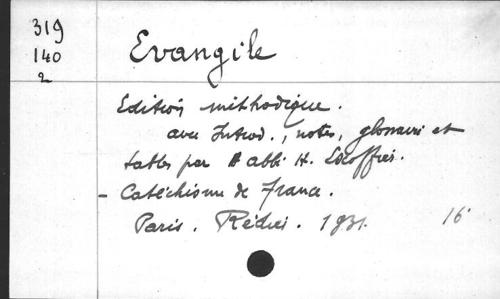 319
140
2
Evangile
Edition méthodique.
avec Introd., notes, glossaire et
tables par l'abbé H.
- Catéchisme de France.
Paris. 1931. 16°